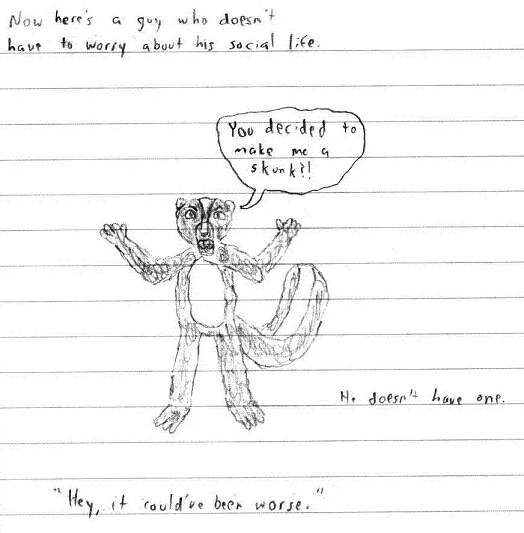 Now here's a guy who doesn't
have to worry about his social life.
You decided to
make me a
skunk?!
He doesn't have one.
"Hey, it could've been worse."